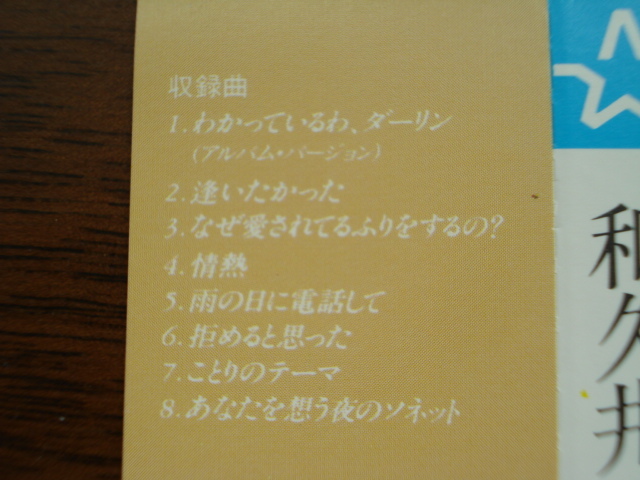 収録曲
1. わかっているわ、ダーリン
(アルバム・バージョン)
2. 逢いたかった
3. なぜ愛されてるふりをするの?
4. 情熱
5. 雨の日に電話して
6. 拒めると思った
7. ことりのテーマ
8. あなたを想う夜のソネット
和久井